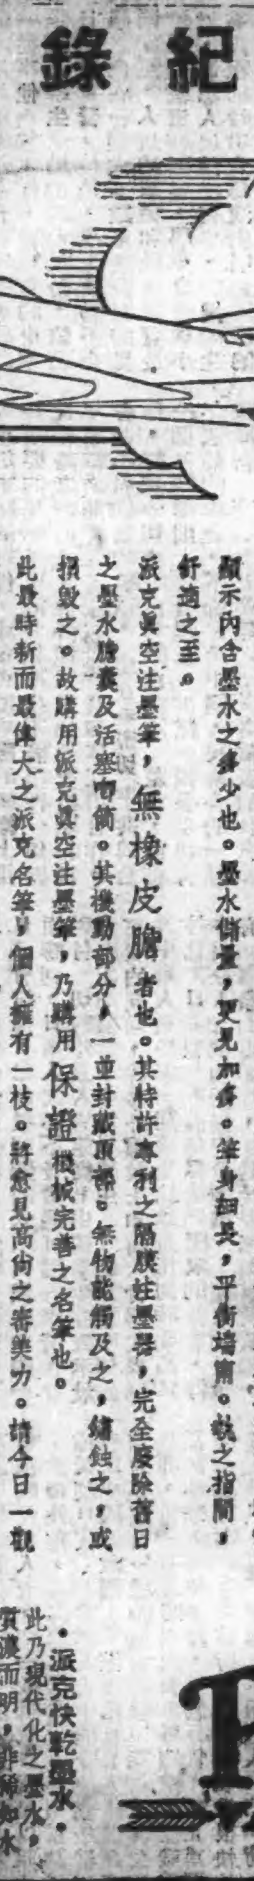 紀錄
顯示內含墨水之多少也。墨水儲量,更見加多。筆身細長,平衡均衡。執之指間,
舒適之至。
派克眞空注墨筆,無橡皮膽者也。其特許專利之隔膜注墨器,完全廢除舊日
之墨水膽囊及活塞唧筒。其機動部分,一並封藏頂部。無物能觸及之,鏽蝕之,或
損毀之。故購用派克眞空注墨筆,乃購用保證機械完善之名筆也。
此最時新而最偉大之派克名筆,個人擁有一枝。將愈見高尚之審美力。請今日一觀
P
•派克快乾墨水•
此乃現代化之墨水,
質濃而明,非稀如水